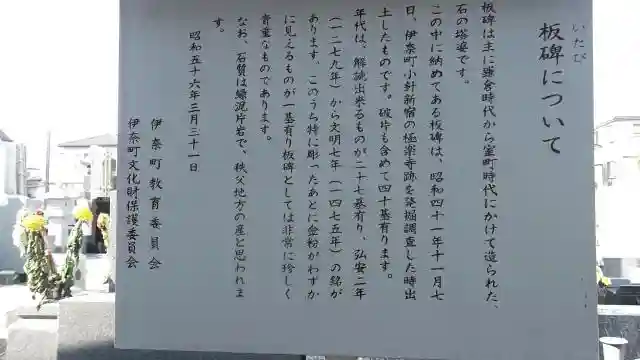 いたび
板碑について
板碑は主に鎌倉時代から室町時代にかけて造られた、
石の塔婆です。
この中に納めてある板碑は、昭和四十一年十一月七
日、伊奈町小針新宿の極楽寺跡を発掘調査した時出
土したものです。破片も含めて四十基有ります。
年代は、解読出来るものが二十七基有り、弘安二年
（一二七九年）から文明七年（一四七五年）の銘が
あります。このうち特に彫ったあとに金粉がわずか
に見えるものが一基有り板碑としては非常に珍しく
貴重なものであります。
なお、石質は緑泥片岩で、秩父地方の産と思われま
す。
昭和五十六年三月三十一日
伊奈町教育委員会
伊奈町文化財保護委員会